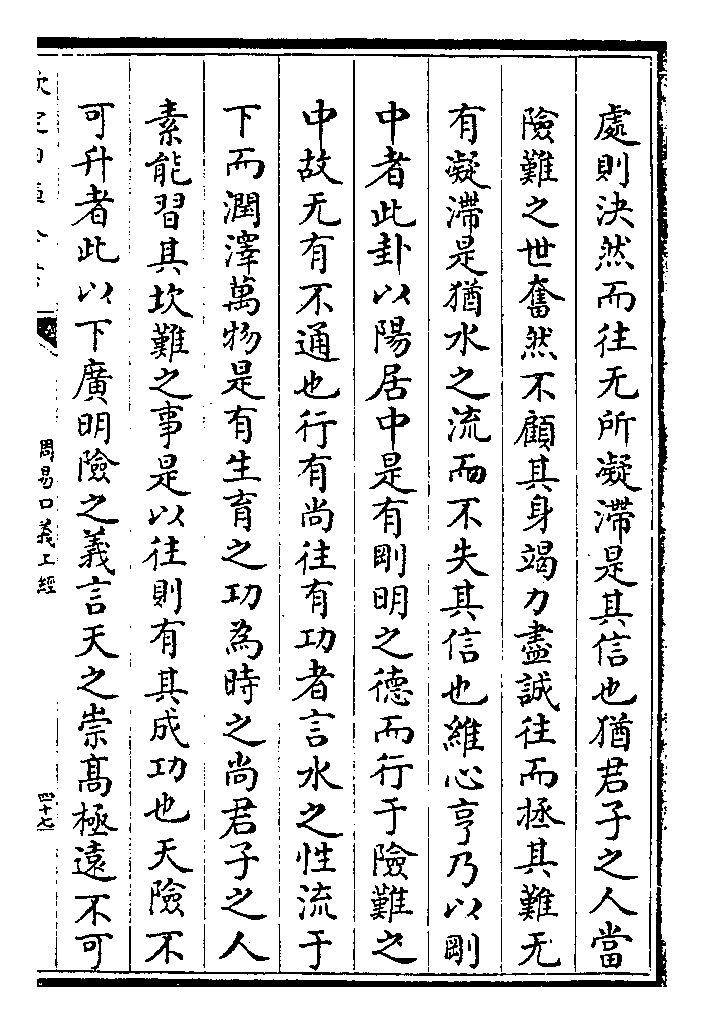 處則決然而往无所凝滯是其信也猶君子之人當
險難之世奮然不顧其身竭力盡誠往而拯其難无
有凝滯是猶水之流而不失其信也維心亨乃以剛
中者此卦以陽居中是有剛明之德而行于險難之
中故无有不通也行有尚往有功者言水之性流于
下而潤澤萬物是有生育之功為時之尚君子之人
素能習其坎難之事是以往則有其成功也天險不
可升者此以下廣明險之義言天之崇髙極遠不可
周易口義上經
四十七